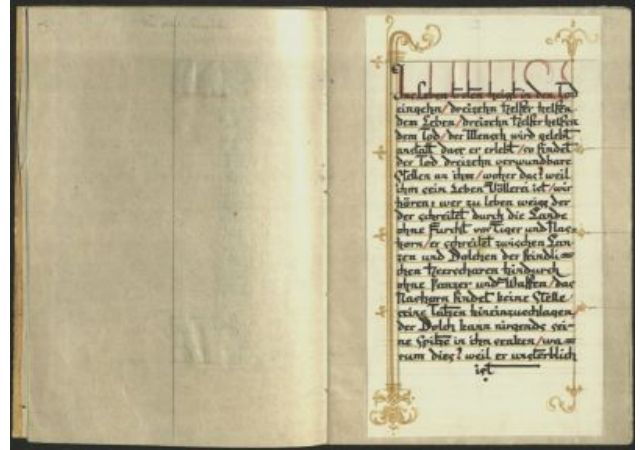 Ins Leben treten heißt in den Tod
eingehn/dreizehn Helfer helfen
dem Leben/dreizehn Helfer helfen
dem Tod/der Mensch wird gelebt
anstatt dass er erlebt/so findet
der Tod dreizehn verwundbare
Stellen an ihm/woher das? weil
ihm sein Leben Völlerei ist/wir
hören: wer zu leben weiss der
der schreitet durch die Lande
ohne Furcht vor Tiger und Nas-
horn/er schreitet zwischen Lan-
zen und Dolchen der feindli=
chen Heerscharen hindurch
ohne Panzer und Waffen/das
Nashorn findet keine Stelle/
seine Tatzen hineinzuschlagen/
der Dolch kann nirgends sei-
ne Spitze in ihn senken/wa=
rum dies? weil er unsterblich
ist